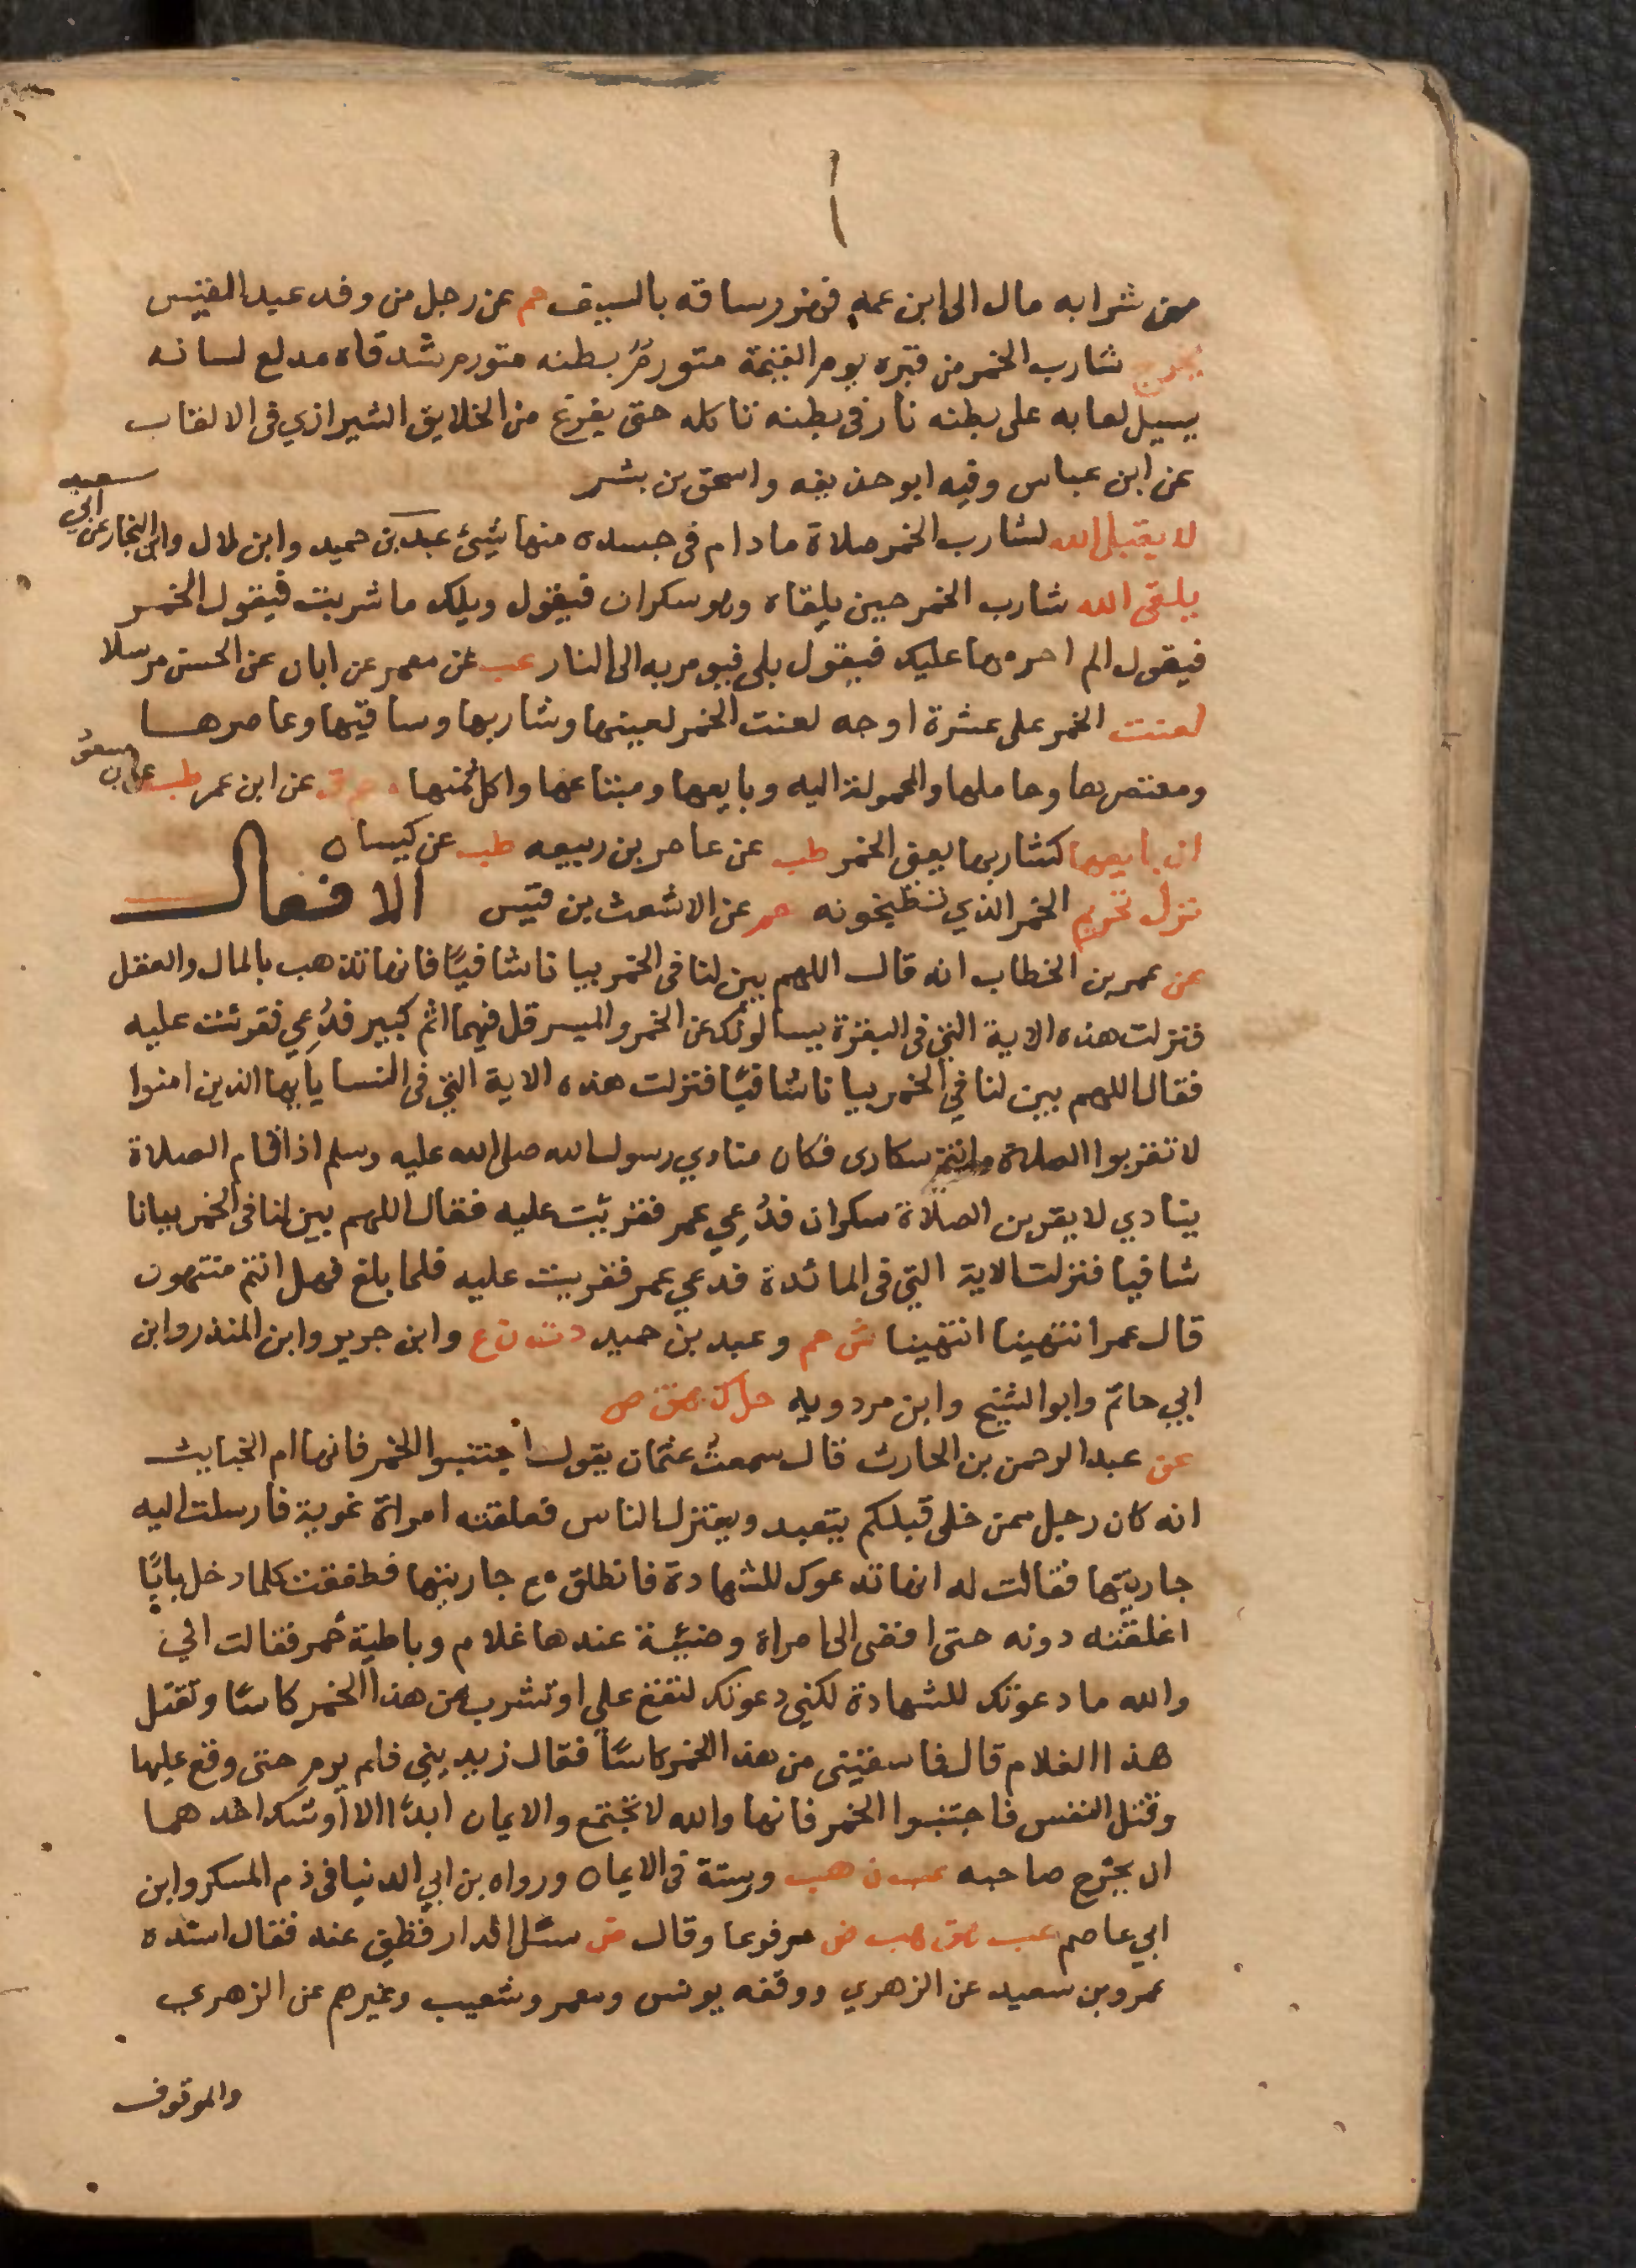 من شرابه مال الى ابن عمه فهزر ساقه بالسيف حم عن رجل من وفد عبد القيس
يخرج شارب الخمر من قبره يوم القيمة متورمٌ بطنه متورم شدقاه مدلع لسانه
يسيل لعابه على بطنه نار فى بطنه تاكله حتى يفرغ من الخلايق الشيرازي فى الالقاب
عن ابن عباس وفيه ابو حذيفه واسحق بن بشر
لا يقبل الله لشارب الخمر صلاة مادام فى جسده منها شيئ عبد بن حميد وابن لال وابن النجار عن ابي
سعيد
يلقى الله شارب الخمر حين يلقاه وهو سكران فيقول ويلك ما شربت فيقول الخمر
فيقول الم احرمها عليك فيقول بلى فيومر به الى النار عب عن معمر عن ابان عن الحسن مرسلا
لعنت الخمر على عشرة اوجه لعنت الخمر لعينها وشاربها وساقيها وعاصرها
ومعتصرها وحاملها والمحمولة اليه وبايعها ومبتاعها واكل ثمنها عن ابن عمر طب عن ابن مسعود
ان بايعها كشاربها يعني الخمر طب عن عامر بن ربيعه طب عن كيسان
نزل تحريم الخمر الذي تطبخونه حم عن الاشعث بن قيس الافعال
عن عمر بن الخطاب انه قال اللهم بين لنا فى الخمر بيانا شافيًا فانها تذهب بالمال والعقل
فنزلت هذه الاية التي فى البقرة يسالونك عن الخمر والميسر قل فيهما اثم كبير فدُعِي فقرئت عليه
فقال اللهم بين لنا في الخمر بيانا شافيًا فنزلت هذه الاية التي فى النسا يايها الذين امنوا
لا تقربوا الصلاة وانتم سكارى فكان منادي رسول الله صلى الله عليه وسلم اذا اقام الصلاة
ينادي لا يقربن الصلاة سكران فدُعِي عمر فقريت عليه فقال اللهم بين لنا فى الخمر بيانا
شافيا فنزلت الاية التي فى المائدة فدعي عمر فقريت عليه فلما بلغ فهل انتم منتهون
قال عمر انتهينا انتهينا ش حم وعبد بن حميد د ت ن ع وابن جرير وابن المنذر وابن
ابي حاتم وابو الشيخ وابن مردويه حل ك هق ض
عن عبد الرحمن بن الحارث قال سمعتُ عثمان يقول اجتنبوا الخمر فانها ام الخبايث
انه كان رجل ممن خلى قبلكم يتعبد ويعتزل الناس فعلقته امراة غوية فارسلت اليه
جاريتها فقالت له انها تدعوك للشهادة فانطلق مع جاريتها فطفقت كلما دخل بابًا
اغلقته دونه حتى افضى الى امراة وضيئة عندها غلام وباطية خمر فقالت اني
والله ما دعوتك للشهادة لكني دعوتك لتقع علي او تشرب من هذا الخمر كاسًا وتقتل
هذا الغلام قال فاسقيني من هذا الخمر كاسًا فقال زيديني فلم يرم حتى وقع عليها
وقتل النفس فاجتنبوا الخمر فانها والله لا تجتمع والايمان ابدًا الا اوشك احدهما
ان يخرج صاحبه عب ن هب ورستة فى الايمان ورواه بن ابي الدنيا فى ذم المسكر وابن
ابي عاصم عب هق هب ض مرفوعا وقال ض سئل الدارقطني عنه فقال اسنده
عمرو بن سعيد عن الزهري ووقفه يونس ومعمر وشعيب وغيرهم عن الزهري
والموقوف